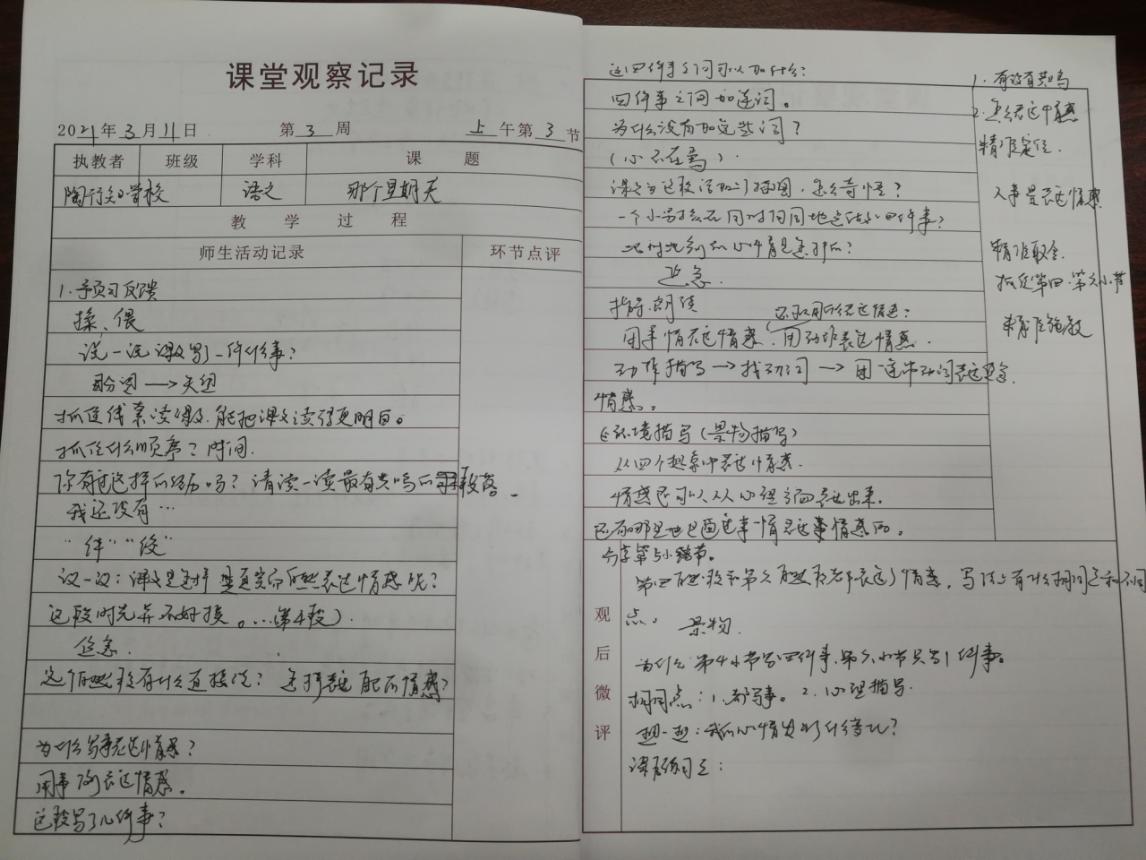 课堂观察记录
2021年3月11日 第3周 上午第3节
执教者 班级 学科 课题
陶行知小学校 语文 那个星期天
教学过程
师生活动记录 环节点评
1.预习反馈
揉、偎
说一说课文写了一件什么事?
盼望——>失望
抓住线索读课文,能把课文读得更明白。
抓住什么顺序?时间.
你有过这样的经历吗?请读一读最有共鸣的段落。
我还没有…
议一议:课文是怎样 真实自然表达情感呢?
这段时光并不好挨。…(第4段)
焦急.
这个自然段有什么直接位? 怎样表达 情感?
为什么写事表达情感?
用事例表达情感。
这段写了几件事?
这四件事之间可以加什么?
四件事之间加连词。
为什么没有加这些词?
(心不在焉).
一个小男孩在同时间同地点做了四件事?
此时此刻的心情是怎样的?
焦急.
指导朗读
用事情表达情感,用动作表达情感.
动作描写→找动词→用连串动词表达
情感。
环境描写(景物描写)
情感还可以从心理方面表达出来.
还有哪里也是通过事情表达事情感的。
1.有没有共鸣
2.怎么表达情感
精准定位.
人事景表达情感
精准取舍.
抓住第四、第六小节
精准施教
观后微评
分享第5小节.
点。 景物.
为什么第4小节写四件事,第六小节只写1件事。
相同点:1.都写事。2.心理描写.
想一想:我的心情发生什么变化?